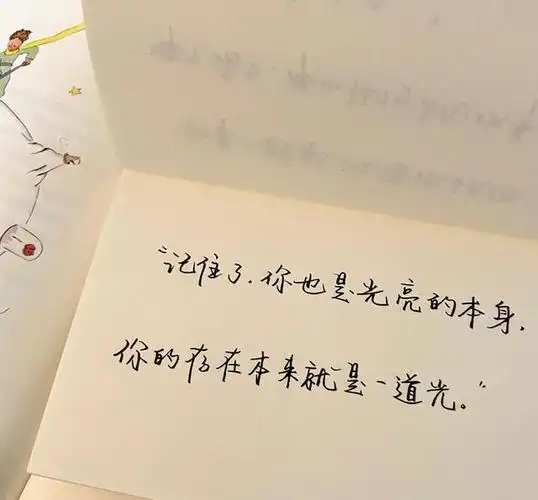 “记住了.你也是光亮的本身,
你的存在本来就是一道光。”